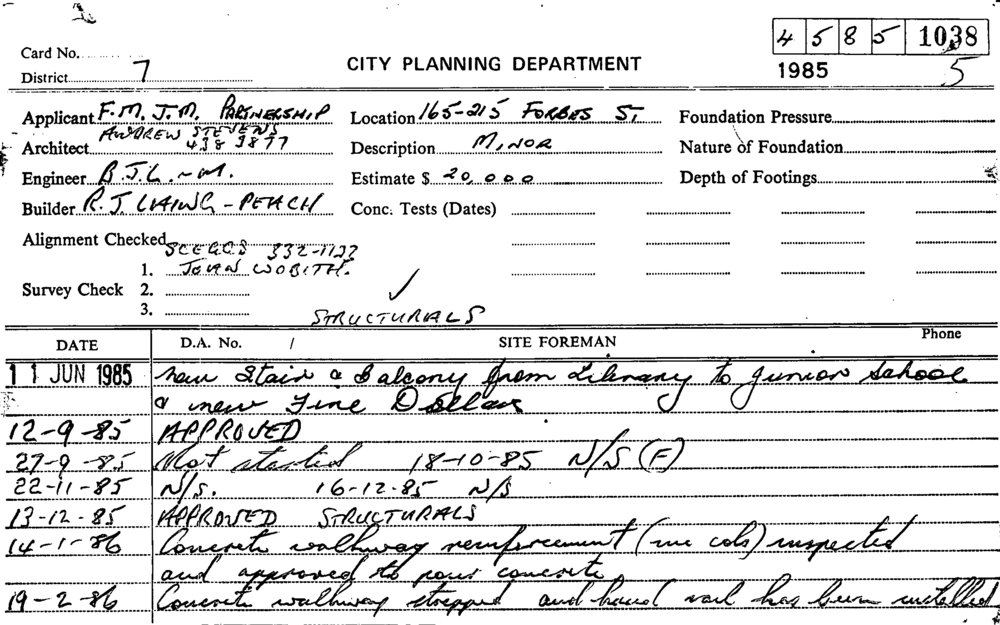 4 5 8 5 1038
Card No.
CITY PLANNING DEPARTMENT
District 7
1985 5
Applicant F.M.J.M. PARTNERSHIP Location 165-215 FORBES ST, Foundation Pressure
ANDREW STEVENS
Architect 438 3877 Description MINOR Nature of Foundation
Engineer B.J.L. Estimate $ 20,000 Depth of Footings
Builder R.J. LAING-PEACH Conc. Tests (Dates)
Alignment Checked
SCEGGS 332-1133
1. JOHN WOBITH.
Survey Check 2.
3.
✓
STRUCTURALS
DATE D.A. No. / SITE FOREMAN Phone
11 JUN 1985 New Stair & Balcony from Library to junior School
& new Fire
12-9-85 APPROVED
27-9-85 Not started 18-10-85 N/S (F)
22-11-85 N/S. 16-12-85 N/S
13-12-85 APPROVED STRUCTURALS
14-1-86 Concrete walkway reinforcement (inc cols) inspected
and approved to pour concrete
19-2-86 Concrete walkway stripped and hand rail has been installed